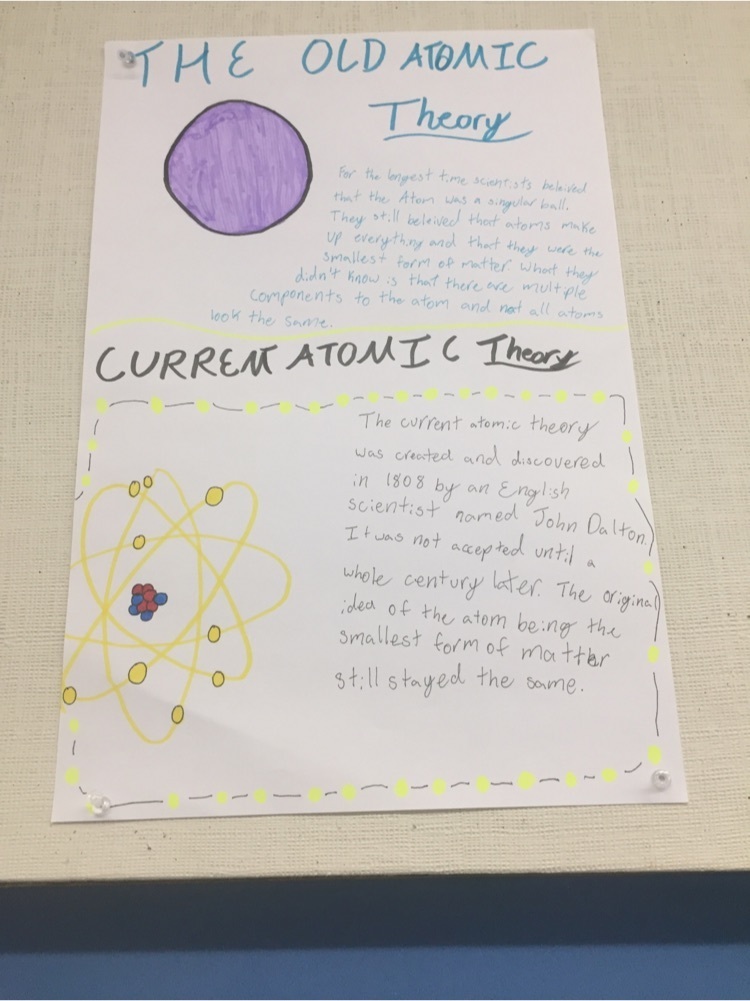 THE OLD ATOMIC
Theory
For the longest time scientists beleived
that the Atom was a singular ball.
They still beleived that atoms make
up everything and that they were the
smallest form of matter what they
didn't know is that there are multiple
components to the atom and not all atoms
look the same.
CURRENT ATOMIC Theory
The current atomic theory
was created and discovered
in 1808 by an English
scientist named John Dalton.
It was not accepted until a
whole century later. The original
idea of the atom being the
smallest form of matter
still stayed the same.